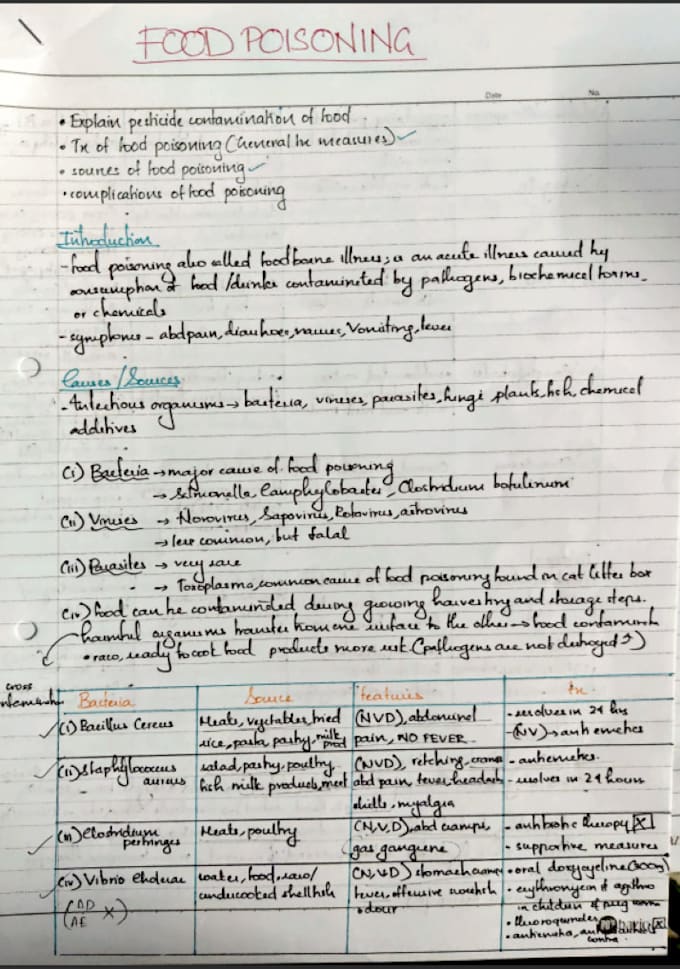 FOOD POISONING
Date
No.
• Explain pesticide contamination of food
• Tx of food poisoning (General tx measures) ✓
• sources of food poisoning ✓
• complications of food poisoning
Introduction
- food poisoning also called foodborne illness, is an acute illness caused by
consumption of food /drinks contaminated by pathogens, biochemical toxins
or chemicals
- symptoms - abd pain, diarrhoea, nausea, Vomiting, fever
Causes / Sources
- Infectious organisms → bacteria, viruses, parasites, fungi plants, fish, chemical
additives
(i) Bacteria → major cause of food poisoning
→ Salmonella, Camphylobacter, Clostridium botulinum
(ii) Viruses → Norovirus, Sapovirus, Rotavirus, astrovirus
→ less common, but fatal
(iii) Parasites → very rare
→ Toxoplasma, common cause of food poisoning found in cat litter box
(iv) food can be contaminated during growing harvesting and storage steps.
harmful organisms transfer from one surface to the other → food contaminate
• raw, ready to cook food products more risk (pathogens are not destroyed)
cross
Bacteria Source features tx
(i) Bacillus Cereus Meats, vegetables, fried (NVD), abdominal - resolves in 24 hrs
rice, pasta, pastry, milk prod pain, NO FEVER - (NV) → antiemetics
(ii) Staphylococcus salad, pastry, poultry (NVD), retching, cramp - antiemetics
aureus fish milk products, meat abd pain, fever, headach - resolves in 24 hours
chills, myalgia
(iii) Clostridium Meats, poultry (N,V,D), abd cramps, - antibiotic therapy [X]
perfringes gas gangrene - supportive measures
(iv) Vibrio cholerae water, food, raw/ (N,V,D) stomach cramp • oral doxycycline (300g)
undercooked shellfish fever, offensive • erythromycin & azithro
odour in children & preg
(AD
AE X)
• fluoroquinoles
• antiemetics,
contra